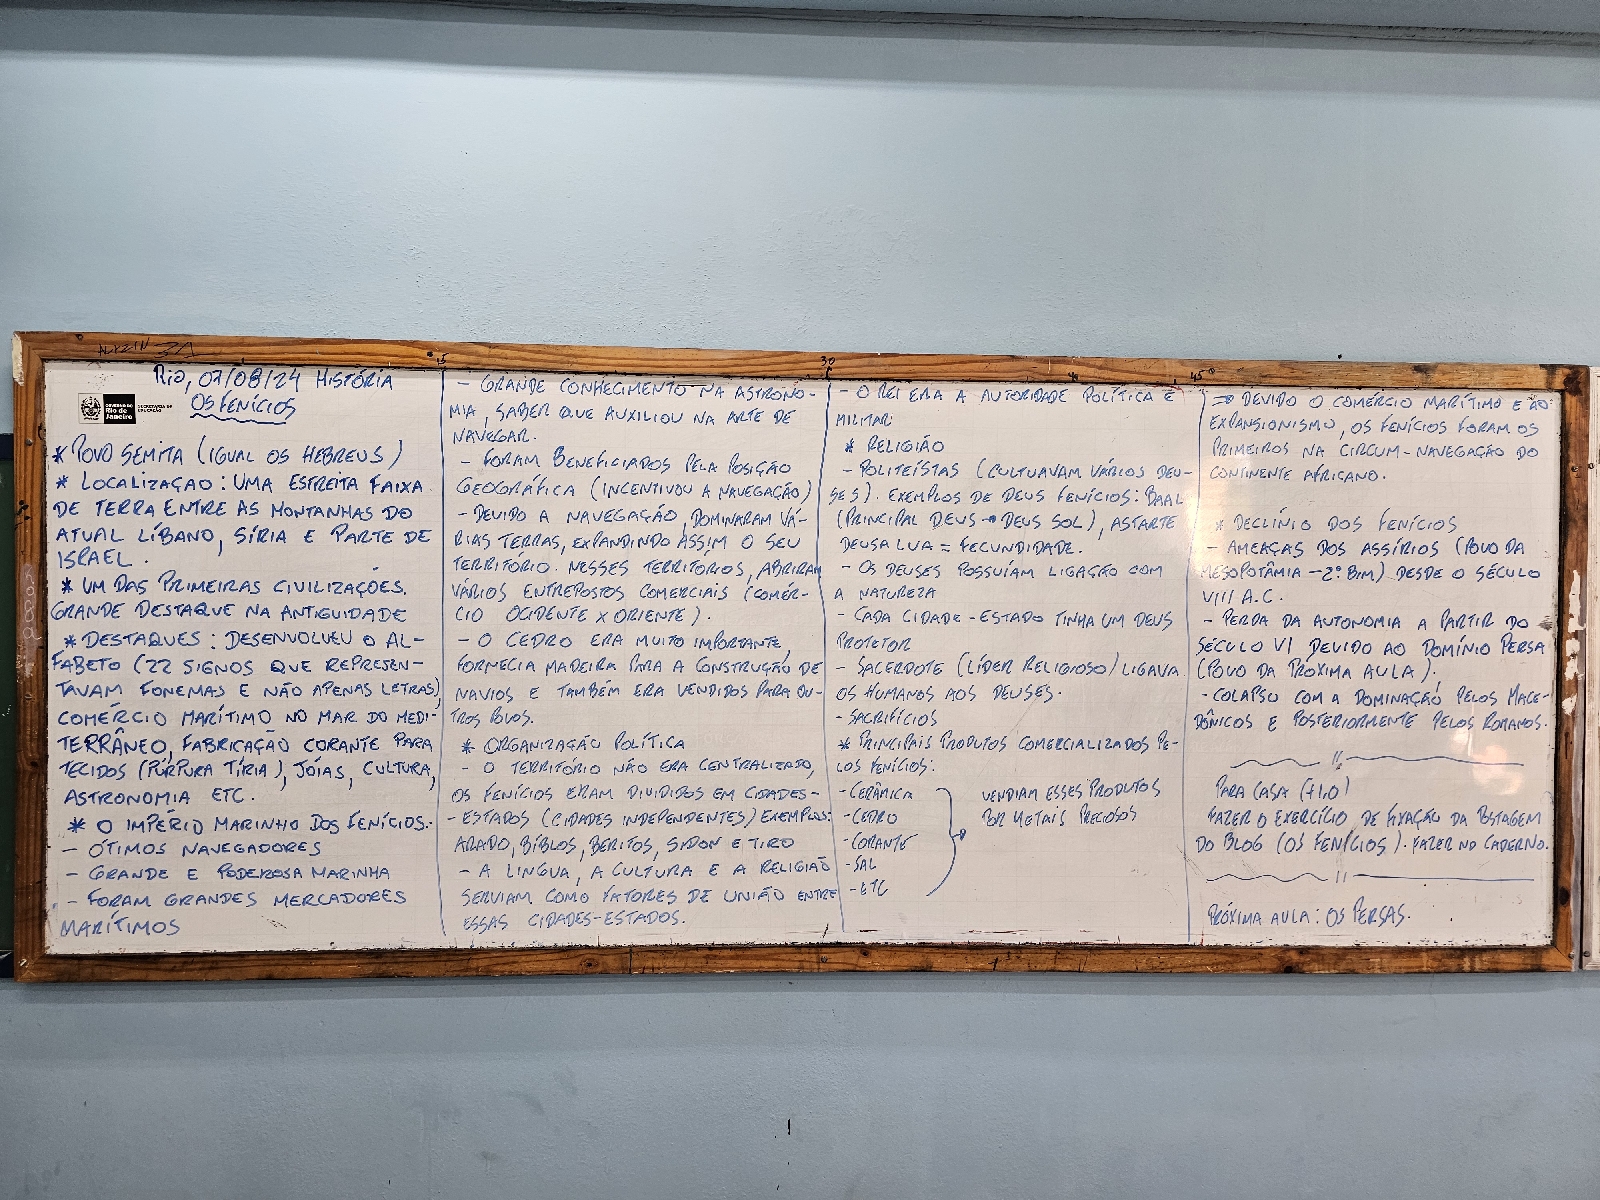 Rio, 07/08/24 HISTÓRIA
GOVERNO DO
Rio de
Janeiro
SECRETARIA DE
EDUCAÇÃO
OS FENÍCIOS
* POVO SEMITA (IGUAL OS HEBREUS)
* LOCALIZAÇÃO: UMA ESTREITA FAIXA
DE TERRA ENTRE AS MONTANHAS DO
ATUAL LÍBANO, SÍRIA E PARTE DE
ISRAEL.
* UM DAS PRIMEIRAS CIVILIZAÇÕES.
GRANDE DESTAQUE NA ANTIGUIDADE
* DESTAQUES: DESENVOLVEU O AL-
FABETO (22 SIGNOS QUE REPRESEN-
TAVAM FONEMAS E NÃO APENAS LETRAS),
COMÉRCIO MARÍTIMO NO MAR DO MEDI-
TERRÂNEO, FABRICAÇÃO CORANTE PARA
TECIDOS (PÚRPURA TÍRIA), JÓIAS, CULTURA,
ASTRONOMIA ETC.
* O IMPÉRIO MARINHO DOS FENÍCIOS:
- ÓTIMOS NAVEGADORES
- GRANDE E PODEROSA MARINHA
- FORAM GRANDES MERCADORES
MARÍTIMOS
15
- GRANDE CONHECIMENTO NA ASTRONO-
MIA, SABER QUE AUXILIOU NA ARTE DE
NAVEGAR.
- FORAM BENEFICIADOS PELA POSIÇÃO
GEOGRÁFICA (INCENTIVOU A NAVEGAÇÃO)
- DEVIDO A NAVEGAÇÃO, DOMINARAM VÁ-
RIAS TERRAS, EXPANDINDO ASSIM O SEU
TERRITÓRIO. NESSES TERRITÓRIOS, ABRIRAM
VÁRIOS ENTREPOSTOS COMERCIAIS (COMÉR-
CIO OCIDENTE X ORIENTE).
- O CEDRO ERA MUITO IMPORTANTE,
FORNECIA MADEIRA PARA A CONSTRUÇÃO DE
NAVIOS E TAMBÉM ERA VENDIDOS PARA OU-
TROS POVOS.
* ORGANIZAÇÃO POLÍTICA
- O TERRITÓRIO NÃO ERA CENTRALIZADO,
OS FENÍCIOS ERAM DIVIDIDOS EM CIDADES-
- ESTADOS (CIDADES INDEPENDENTES) EXEMPLOS:
ARADO, BIBLOS, BERITOS, SIDON E TIRO
- A LINGUA, A CULTURA E A RELIGIÃO
SERVIAM COMO FATORES DE UNIÃO ENTRE
ESSAS CIDADES-ESTADOS.
30
- O REI ERA A AUTORIDADE POLÍTICA E
MILITAR
* RELIGIÃO
- POLITEÍSTAS (CULTUAVAM VÁRIOS DEU-
SES). EXEMPLOS DE DEUS FENÍCIOS: BAAL
(PRINCIPAL DEUS → DEUS SOL), ASTARTE
DEUSA LUA = FECUNDIDADE.
- OS DEUSES POSSUÍAM LIGAÇÃO COM
A NATUREZA
- CADA CIDADE-ESTADO TINHA UM DEUS
PROTETOR
- SACERDOTE (LÍDER RELIGIOSO) LIGAVA
OS HUMANOS AOS DEUSES.
- SACRIFÍCIOS
* PRINCIPAIS PRODUTOS COMERCIALIZADOS PE-
LOS FENÍCIOS:
- CERÂMICA
- CEDRO
- CORANTE
- SAL
- ETC
VENDIAM ESSES PRODUTOS
POR METAIS PRECIOSOS
45
⇒ DEVIDO O COMÉRCIO MARÍTIMO E AO
EXPANSIONISMO, OS FENÍCIOS FORAM OS
PRIMEIROS NA CIRCUM-NAVEGAÇÃO DO
CONTINENTE AFRICANO.
* DECLÍNIO DOS FENÍCIOS
- AMEAÇAS DOS ASSÍRIOS (POVO DA
MESOPOTÂMIA - 2º BIM) DESDE O SÉCULO
VIII A.C.
- PERDA DA AUTONOMIA A PARTIR DO
SÉCULO VI DEVIDO AO DOMÍNIO PERSA
(POVO DA PRÓXIMA AULA).
- COLAPSO COM A DOMINAÇÃO PELOS MACE-
DÔNICOS E POSTERIORMENTE PELOS ROMANOS.
PARA CASA (+1,0)
FAZER O EXERCÍCIO DE FIXAÇÃO DA POSTAGEM
DO BLOG (OS FENÍCIOS). FAZER NO CADERNO.
PRÓXIMA AULA: OS PERSAS.